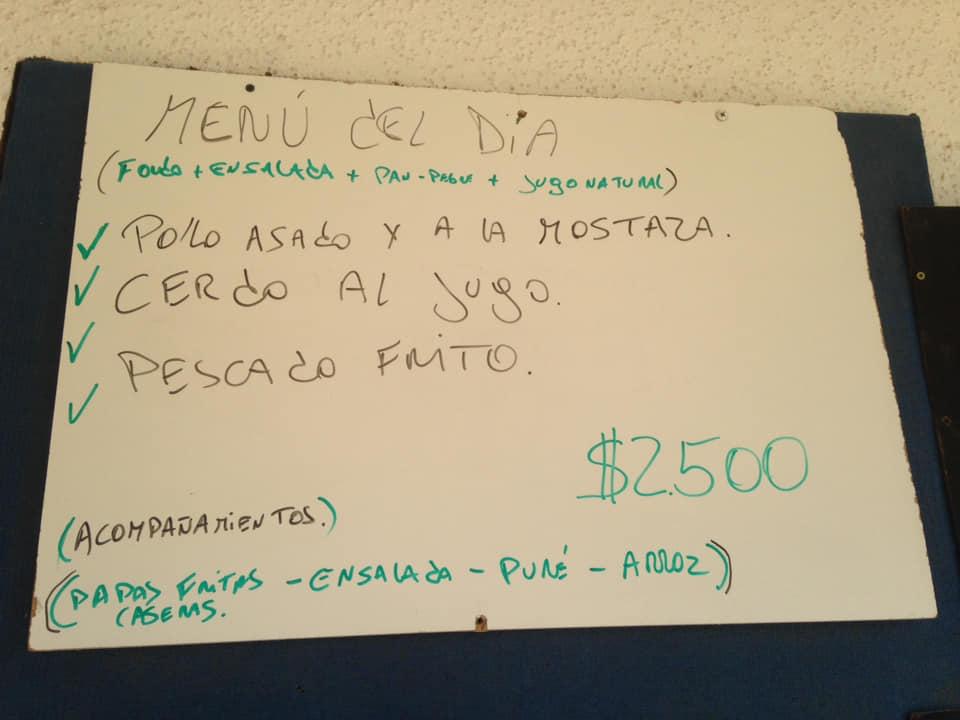 MENÚ DEL DÍA
(FONDO + ENSALADA + PAN-PEBRE + JUGO NATURAL)
✓ POLLO ASADO Y A LA MOSTAZA.
✓ CERDO AL JUGO.
✓ PESCADO FRITO.
✓
$2.500
(ACOMPAÑAMIENTOS.)
(PAPAS FRITAS - ENSALADA - PURÉ - ARROZ)
CASERAS.